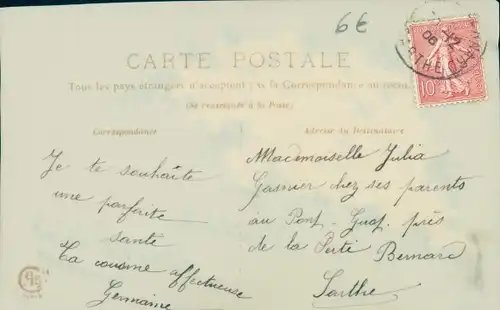 6€
CARTE POSTALE
Tous les pays étrangers n'acceptent pas la Correspondance au recto
(Se renseigner à la Poste)
Correspondance
Adresse du Destinataire
Je te souhaite
une parfaite
santé
Ta cousine affectueuse
Germaine
Mademoiselle Julia
Gasnier chez ses parents
au Pont-Guat près
de la Ferté Bernard
Sarthe
10